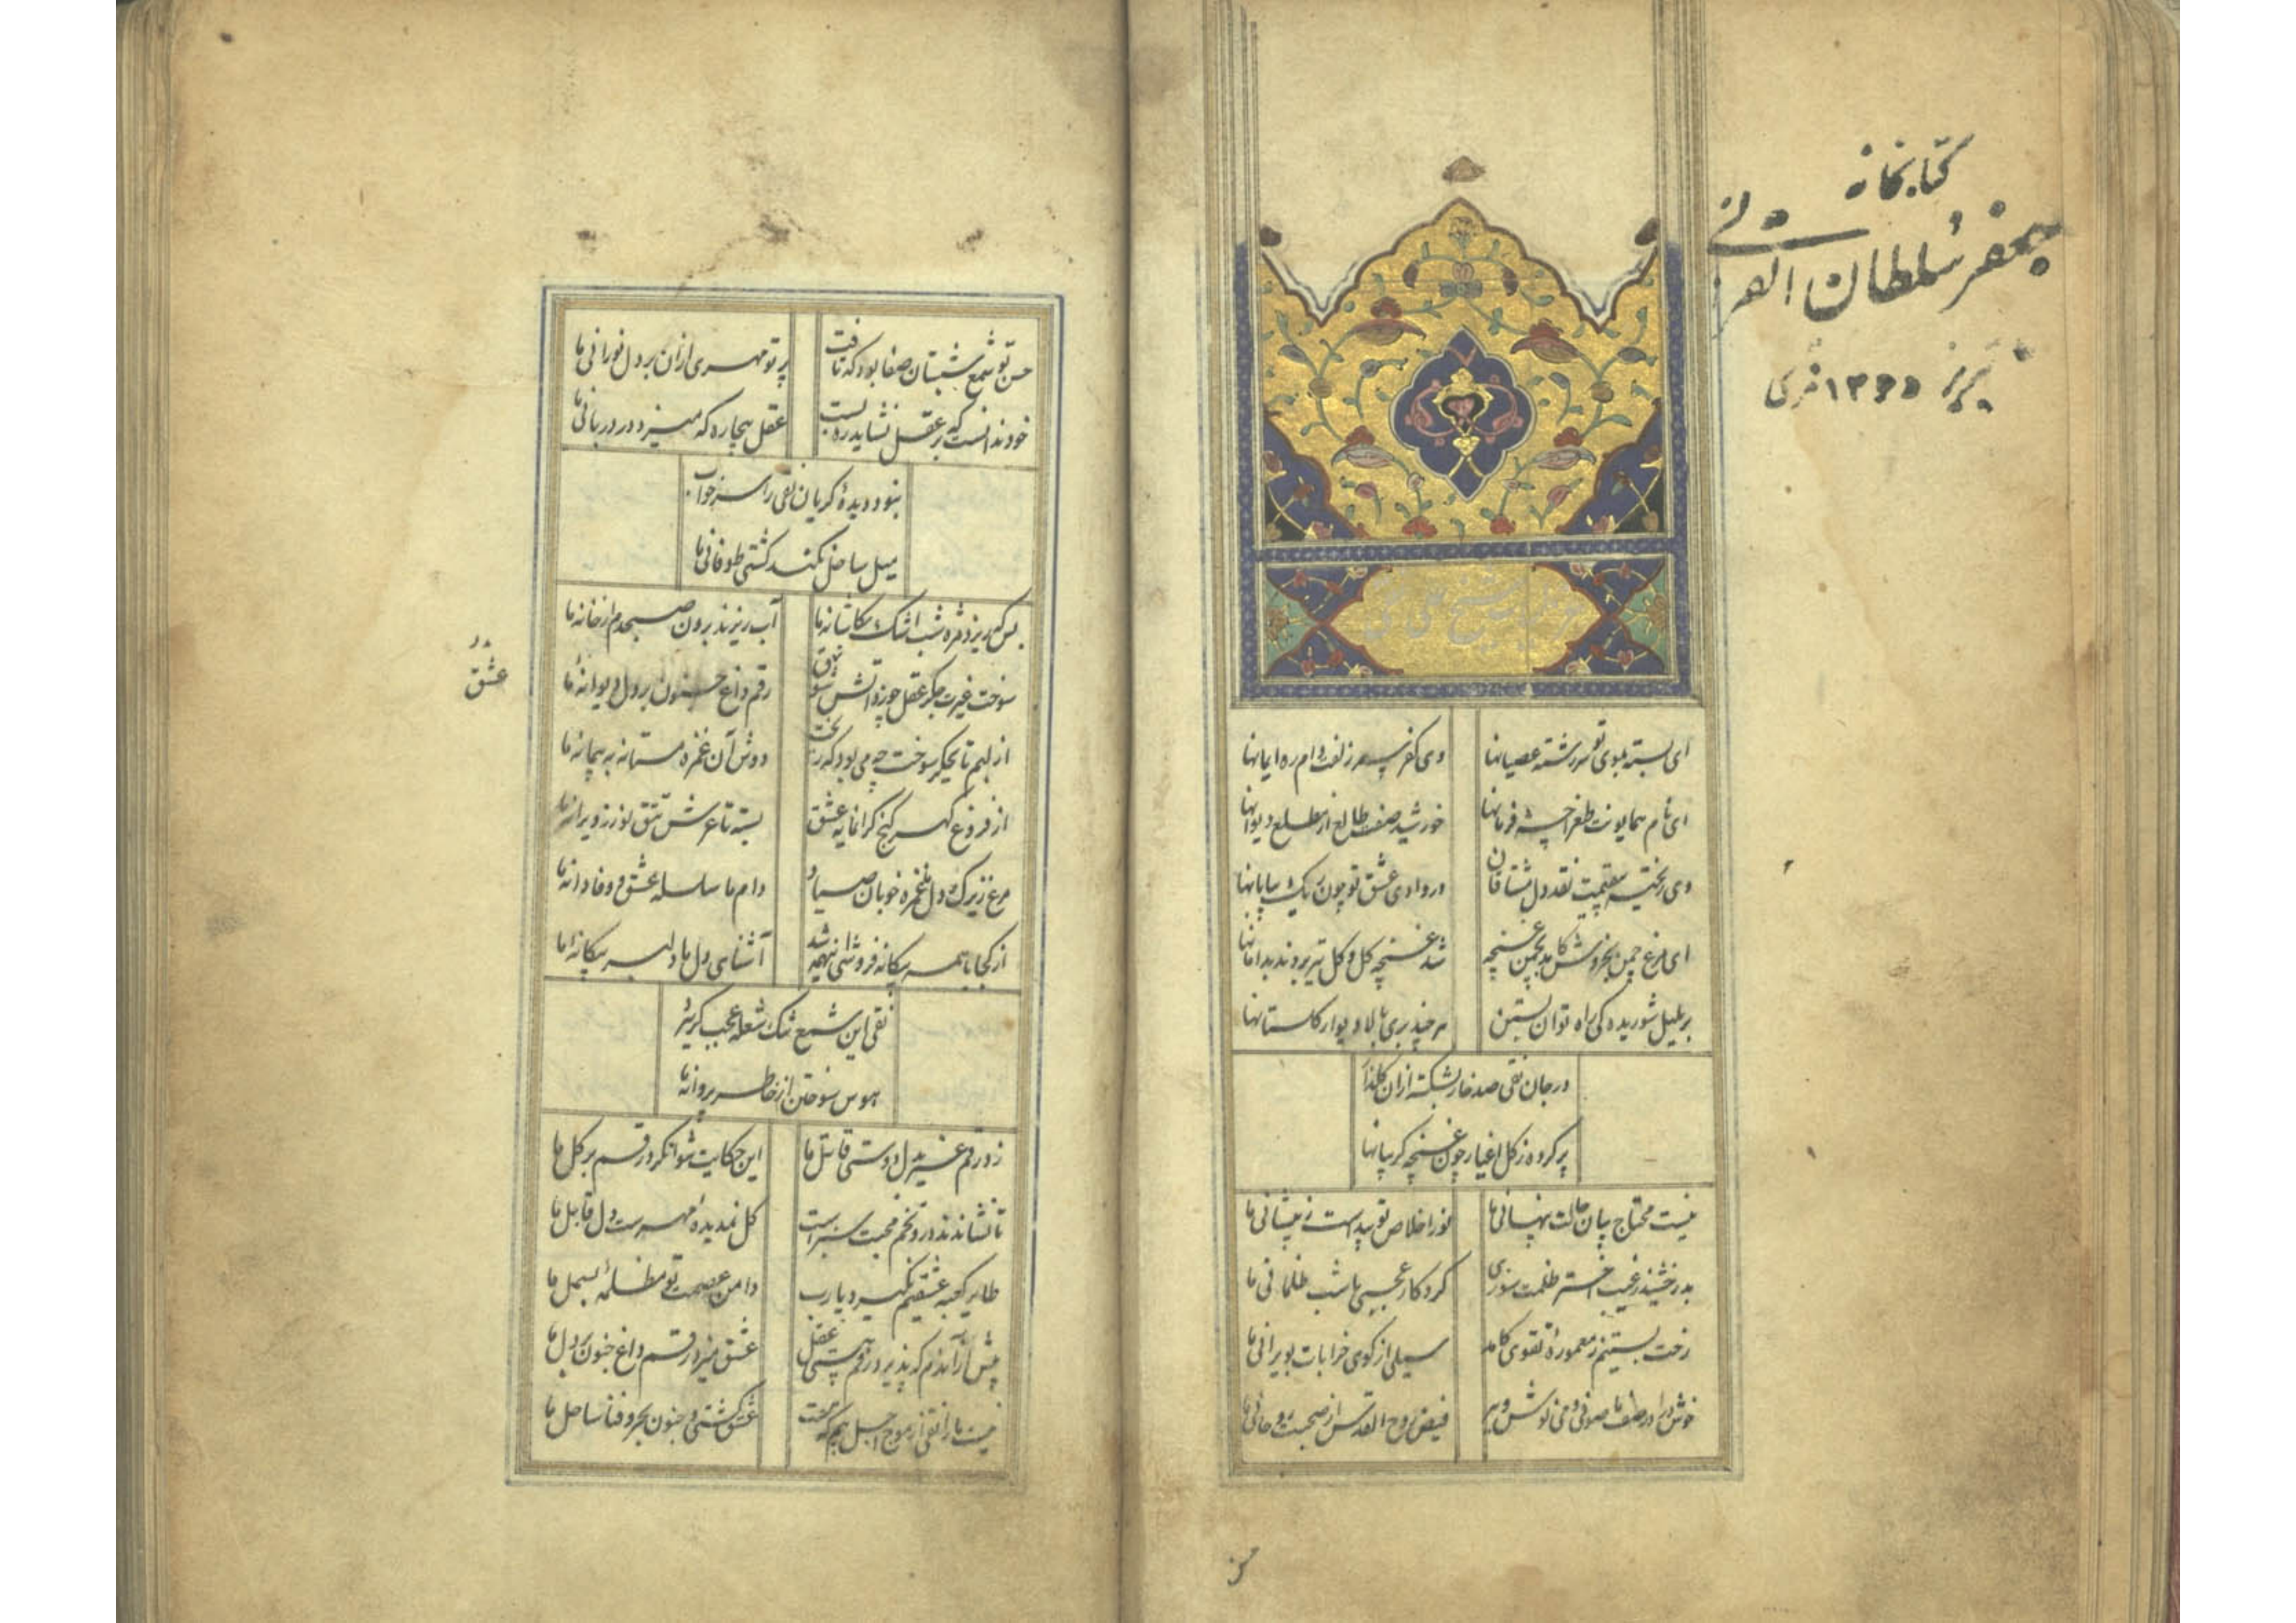 کتابخانه
جعفر سلطان القرائی
تبریز ۱۳۶۵ قمری
ای بسته بموی تو سررشته عصیانها
وی کفر سر زلفت دام ره ایمانها
ای نام همایونت طغراچه فرمانها
خورشید صفت طالع از مطلع دیوانها
وی ریخته بیقیمت نقد دل مشتاقان
در وادی عشق تو چون ریک بیابانها
ای مرغ چمن بخروش کامد بچمن غنچه
شد غنچه کل و کل نیز بردند بدامانها
بر بلبل شوریده کی راه توان بستن
هر چند بری بالا دیوار کلستانها
در جان نقی صد خار بشکسته از ان کلبن
پر کرده ز کل اغیار چون غنچه کریبانها
نیست محتاج بیان حالت پنهانی ما
نور اخلاص تو پیداست ز پیشانی ما
بدرخشید ز غیب اختر ظلمت سوزی
کرد کار عجبی با شب ظلمانی ما
رخت بستیم ز معموره تقوی کامد
سیلی از کوی خرابات بویرانی ما
خوش درا در صف ما صوفی و می نوش و ببر
فیض روح القدس از صحبت روحانی ما
حسن
حسن تو شمع شبستان صفا بود که تافت
پرتو مهری ازان بر دل نورانی ما
خود ندانست که بر عقل نشاید ره بست
عقل بیچاره که میزد در دربانی ما
نبود دیده کریان نقی را سر خواب
میل ساحل نکند کشتی طوفانی ما
بس که ریزد مژه شب اشک بکاشانه ما
آب ریزند برون صبحدم از خانه ما
سوخت غیرت جکر عقل چو زد آتش شوق
رقم داغ جنون بر دل دیوانه ما
عشق
از لبم تا بجکر سوخت چه می بود که ریخت
دوش آن غمزه مستانه به پیمانه ما
از فروغ کهر کنج کرانمایه عشق
بسته تا عرش تتق نور ز ویرانه ما
مرغ زیرک دل و غمزه خوبان صیاد
دام ما سلسله عشق و وفا دانه ما
از کجا با همه بیکانه فروشی شد
آشنای دل ما دلبر بیکانه ما
نقی این شمع تنک شعله عجب کر ببرد
هوس سوختن از خاطر پروانه ما
زد رقم غیر دل دوستی قاتل ما
این حکایت شنوا نکرد رقم بر کل ما
تا نشاندند درو تخم محبت سبز است
کل نمدیده مهرست دل قابل ما
طایر کعبه عشقیم نکیرد یارب
دامن عصمت تو مظلمه بسمل ما
پیش از آندم که پذیرد رقم هستی عقل
عشق میزد رقم داغ جنون بر دل ما
نیست ما را نقی از موج اجل بیم که هست
عشق کشتی و جنون بحر و فنا ساحل ما